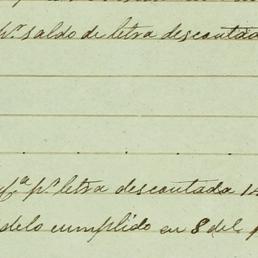 pr. saldo de letra descontada
fa. pr. letra descontada 14
delo cumplido en 8 del p